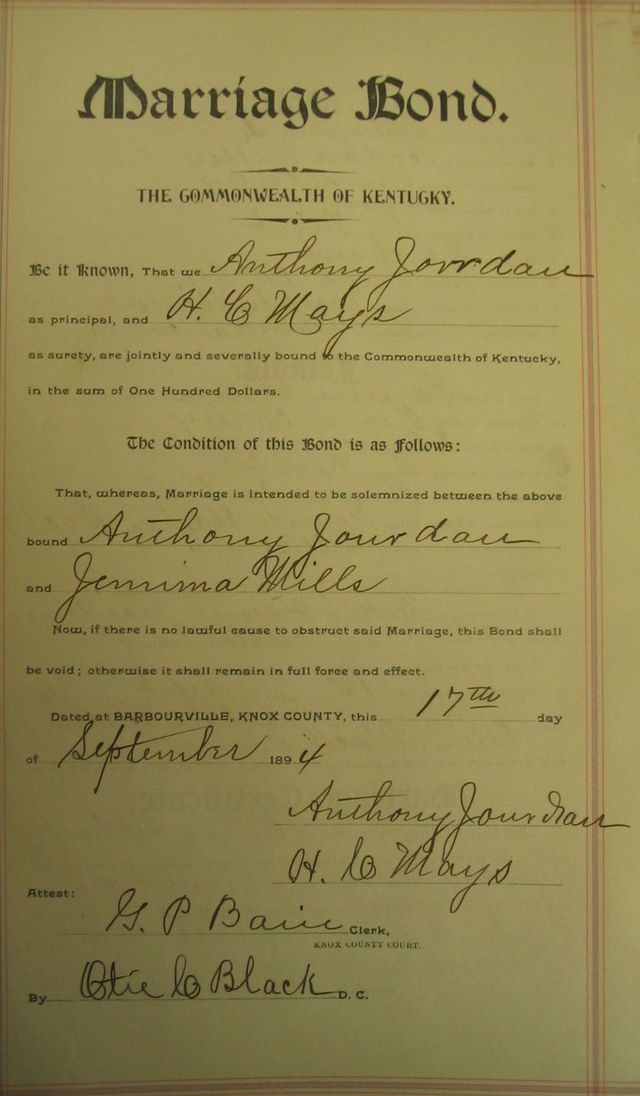 Marriage Bond.
THE COMMONWEALTH OF KENTUCKY.
Be it Known, That we Anthony Jourdan
as principal, and H. C Mays
as surety, are jointly and severally bound to the Commonwealth of Kentucky,
in the sum of One Hundred Dollars.
The Condition of this Bond is as Follows:
That, whereas, Marriage is intended to be solemnized between the above
bound Anthony Jourdan
and Jemima Mills
Now, if there is no lawful cause to obstruct said Marriage, this Bond shall
be void; otherwise it shall remain in full force and effect.
Dated at BARBOURVILLE, KNOX COUNTY, this 17th day
of September 1894
Anthony Jourdan
H. C Mays
Attest:
G. P Bain Clerk,
KNOX COUNTY COURT.
By Otie C Black D. C.